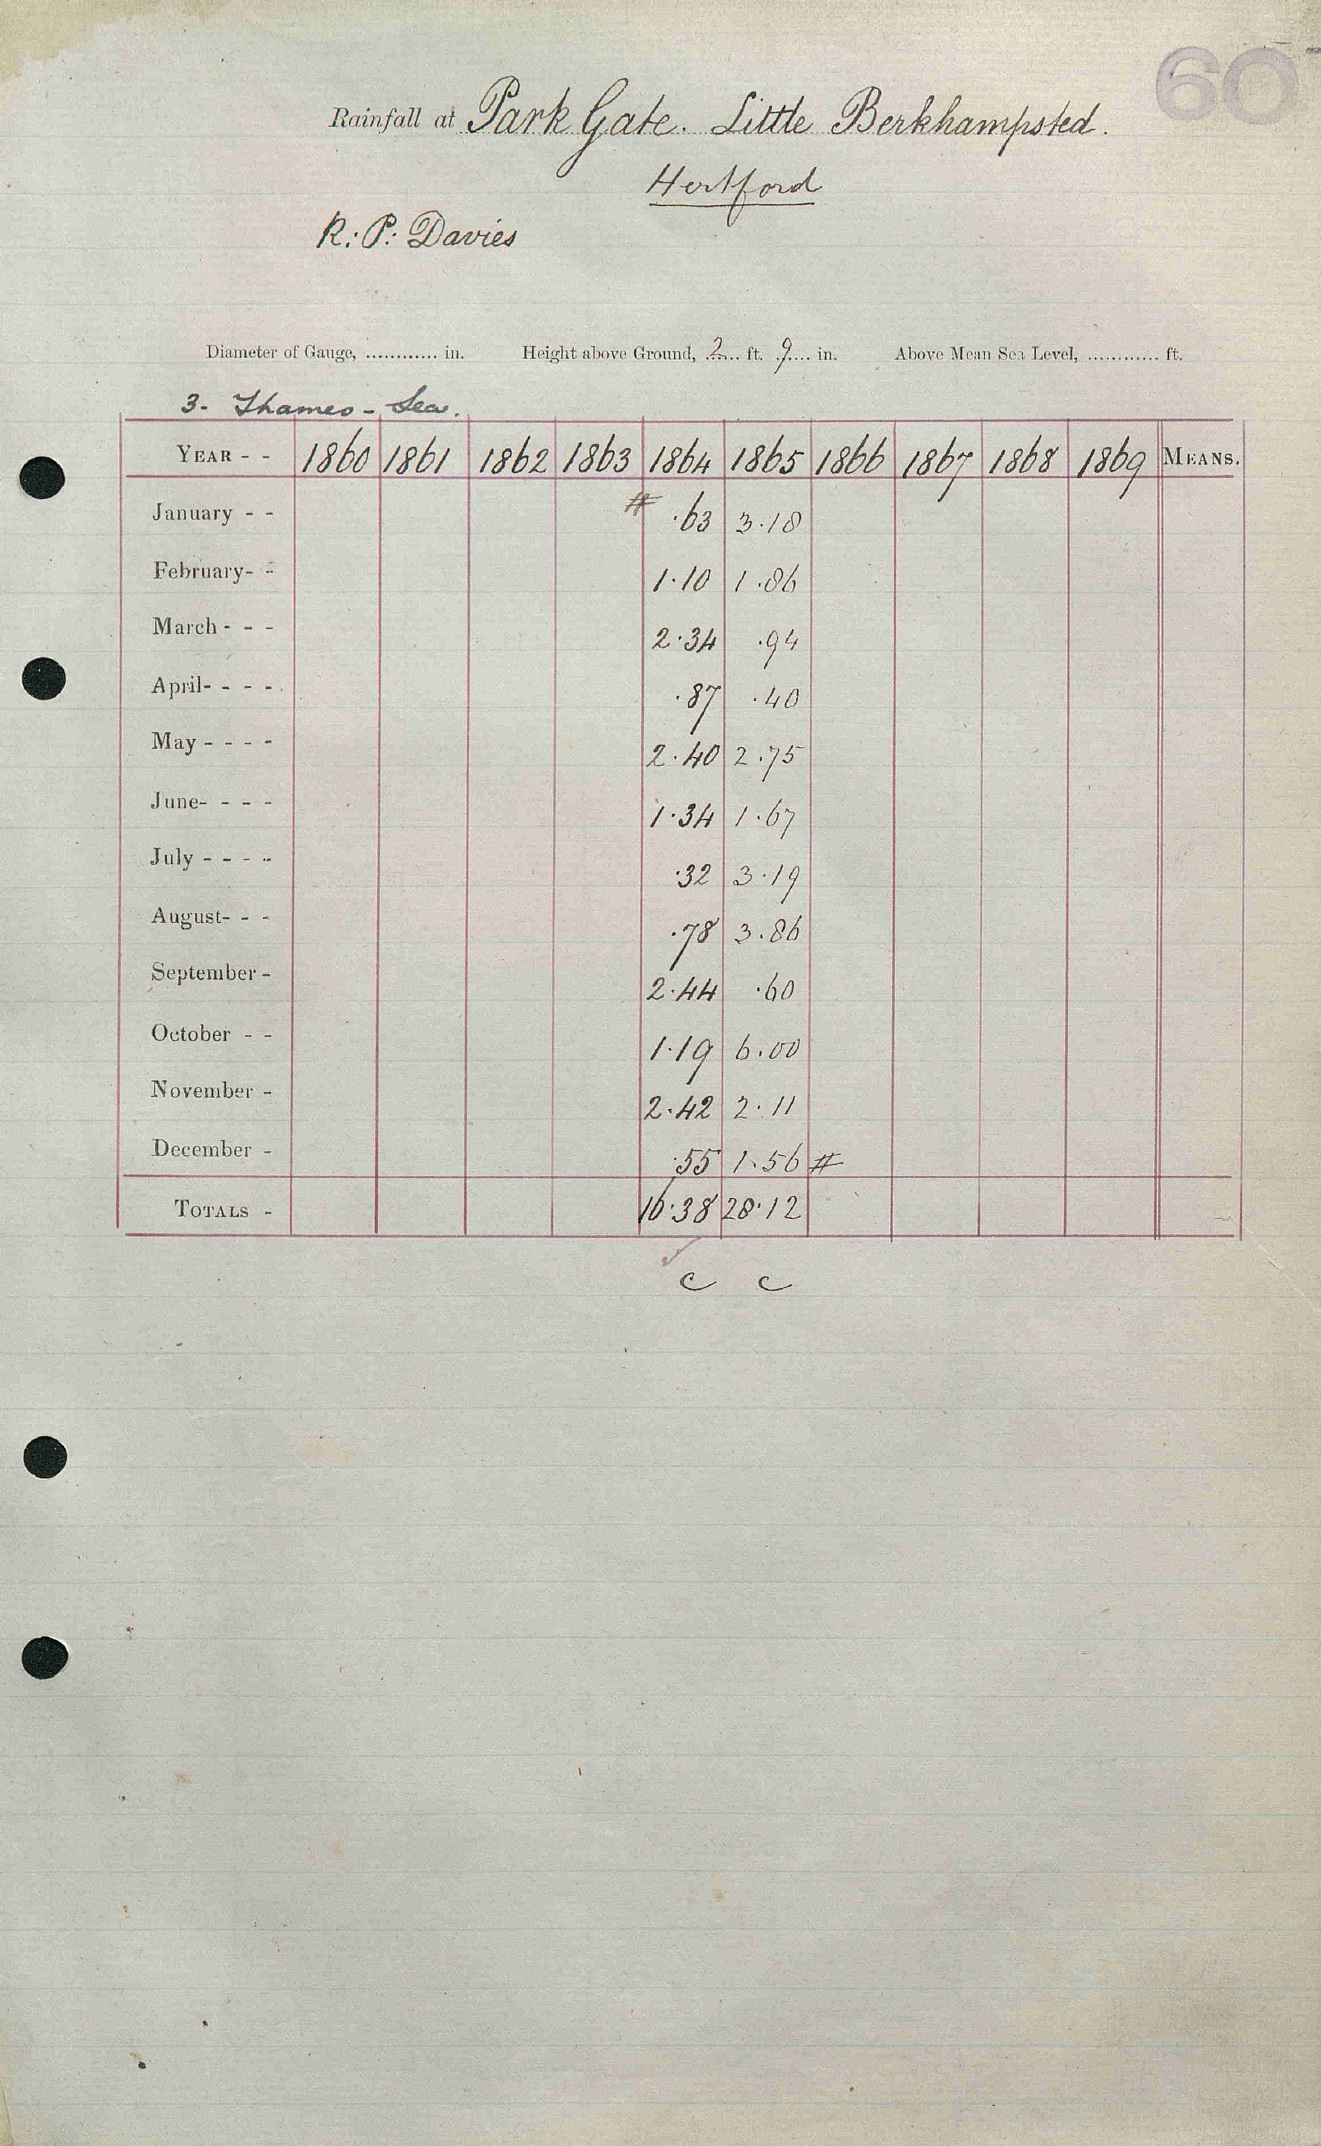 60
Rainfall at Park Gate. Little Berkhampsted.
Hertford
R. P. Davies
Diameter of Gauge, ............ in. Height above Ground, 2 ft. 9 in. Above Mean Sea Level, ............ ft.
3. Thames - Sea.
YEAR - - 1860 1861 1862 1863 1864 1865 1866 1867 1868 1869 MEANS.
January - - # .63 3.18
February- - 1.10 1.86
March - - - 2.34 .94
April- - - - .87 .40
May - - - - 2.40 2.75
June- - - - 1.34 1.67
July - - - - .32 3.19
August- - - .78 3.86
September - 2.44 .60
October - - 1.19 6.00
November - 2.42 2.11
December - .55 1.56 #
TOTALS - 16.38 28.12
c c